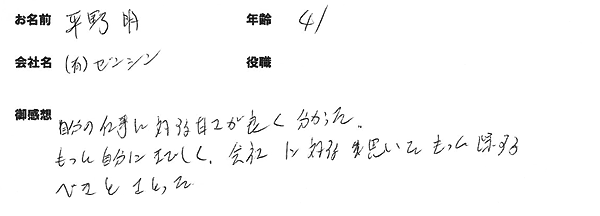 お名前 平野 明 年齢 41
会社名 (有)ゼンシン 役職
御感想 自分の仕事に対する甘さが良く分かった。
もっと自分にきびしく、会社に対する思いをもっと
べきと